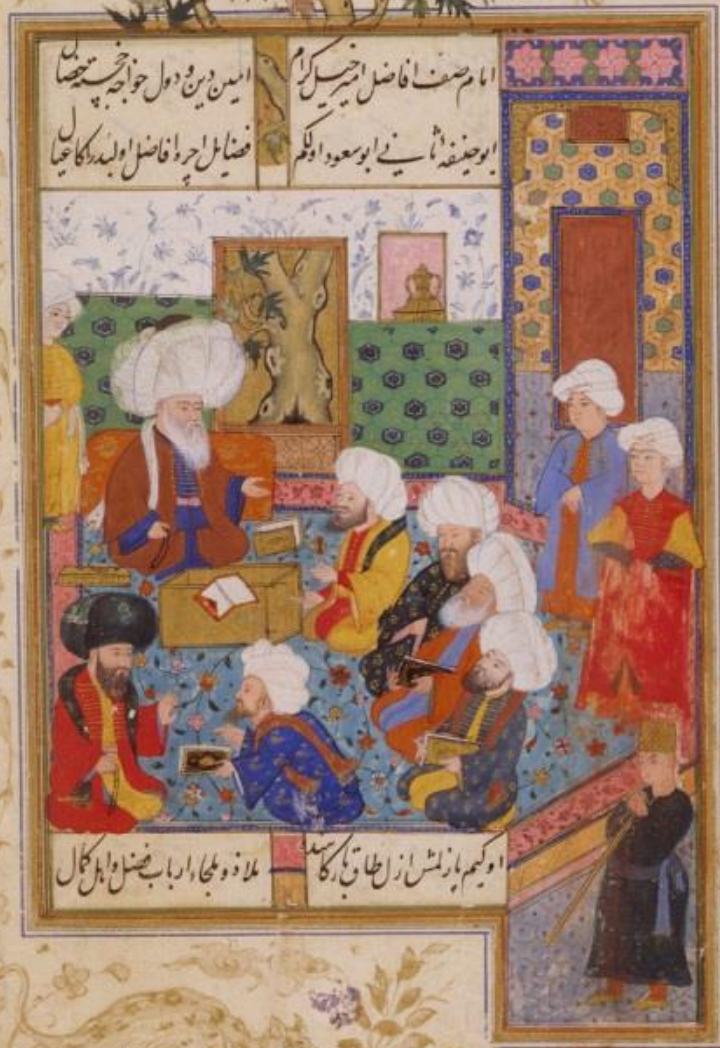 امام صف افاضل امیر خیل کرام امین دین و دول خواجه خجسته خصال
ابوحنیفه ثانی ابو سعود اولکم فضایل اچره افاضل اولبدر اکا عیال
اوکیم یازلمش ازل طاق بارکاهنده ملاذ و ملجاء ارباب فضل و اهل کمال